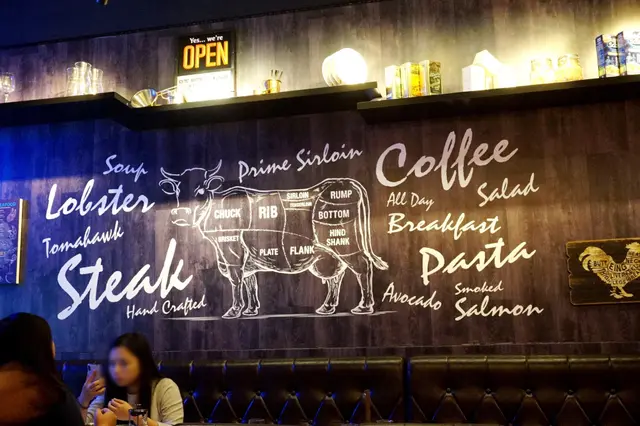 Yes... we're
OPEN
Soup
Lobster
Tomahawk
Steak
Hand Crafted
Prime Sirloin
CHUCK
RIB
SIRLOIN
TENDERLOIN
RUMP
BOTTOM
HIND
SHANK
BRISKET
PLATE
FLANK
Coffee
All Day
Salad
Breakfast
Pasta
Avocado
Smoked
Salmon